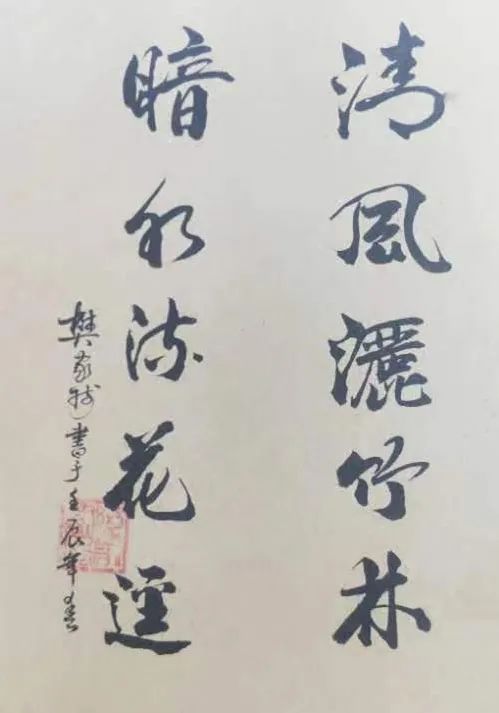 清風灑竹林
暗水流花逕
樊家书于壬辰年春